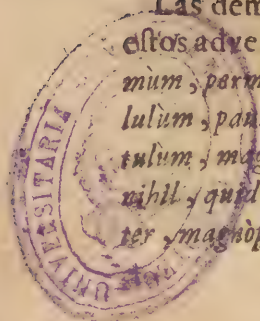 Las dem
estos adve
mùm, parm
lulùm, pau
tulùm, mag
nihil, quid
ter, magnòp
UNIVERSITARIA